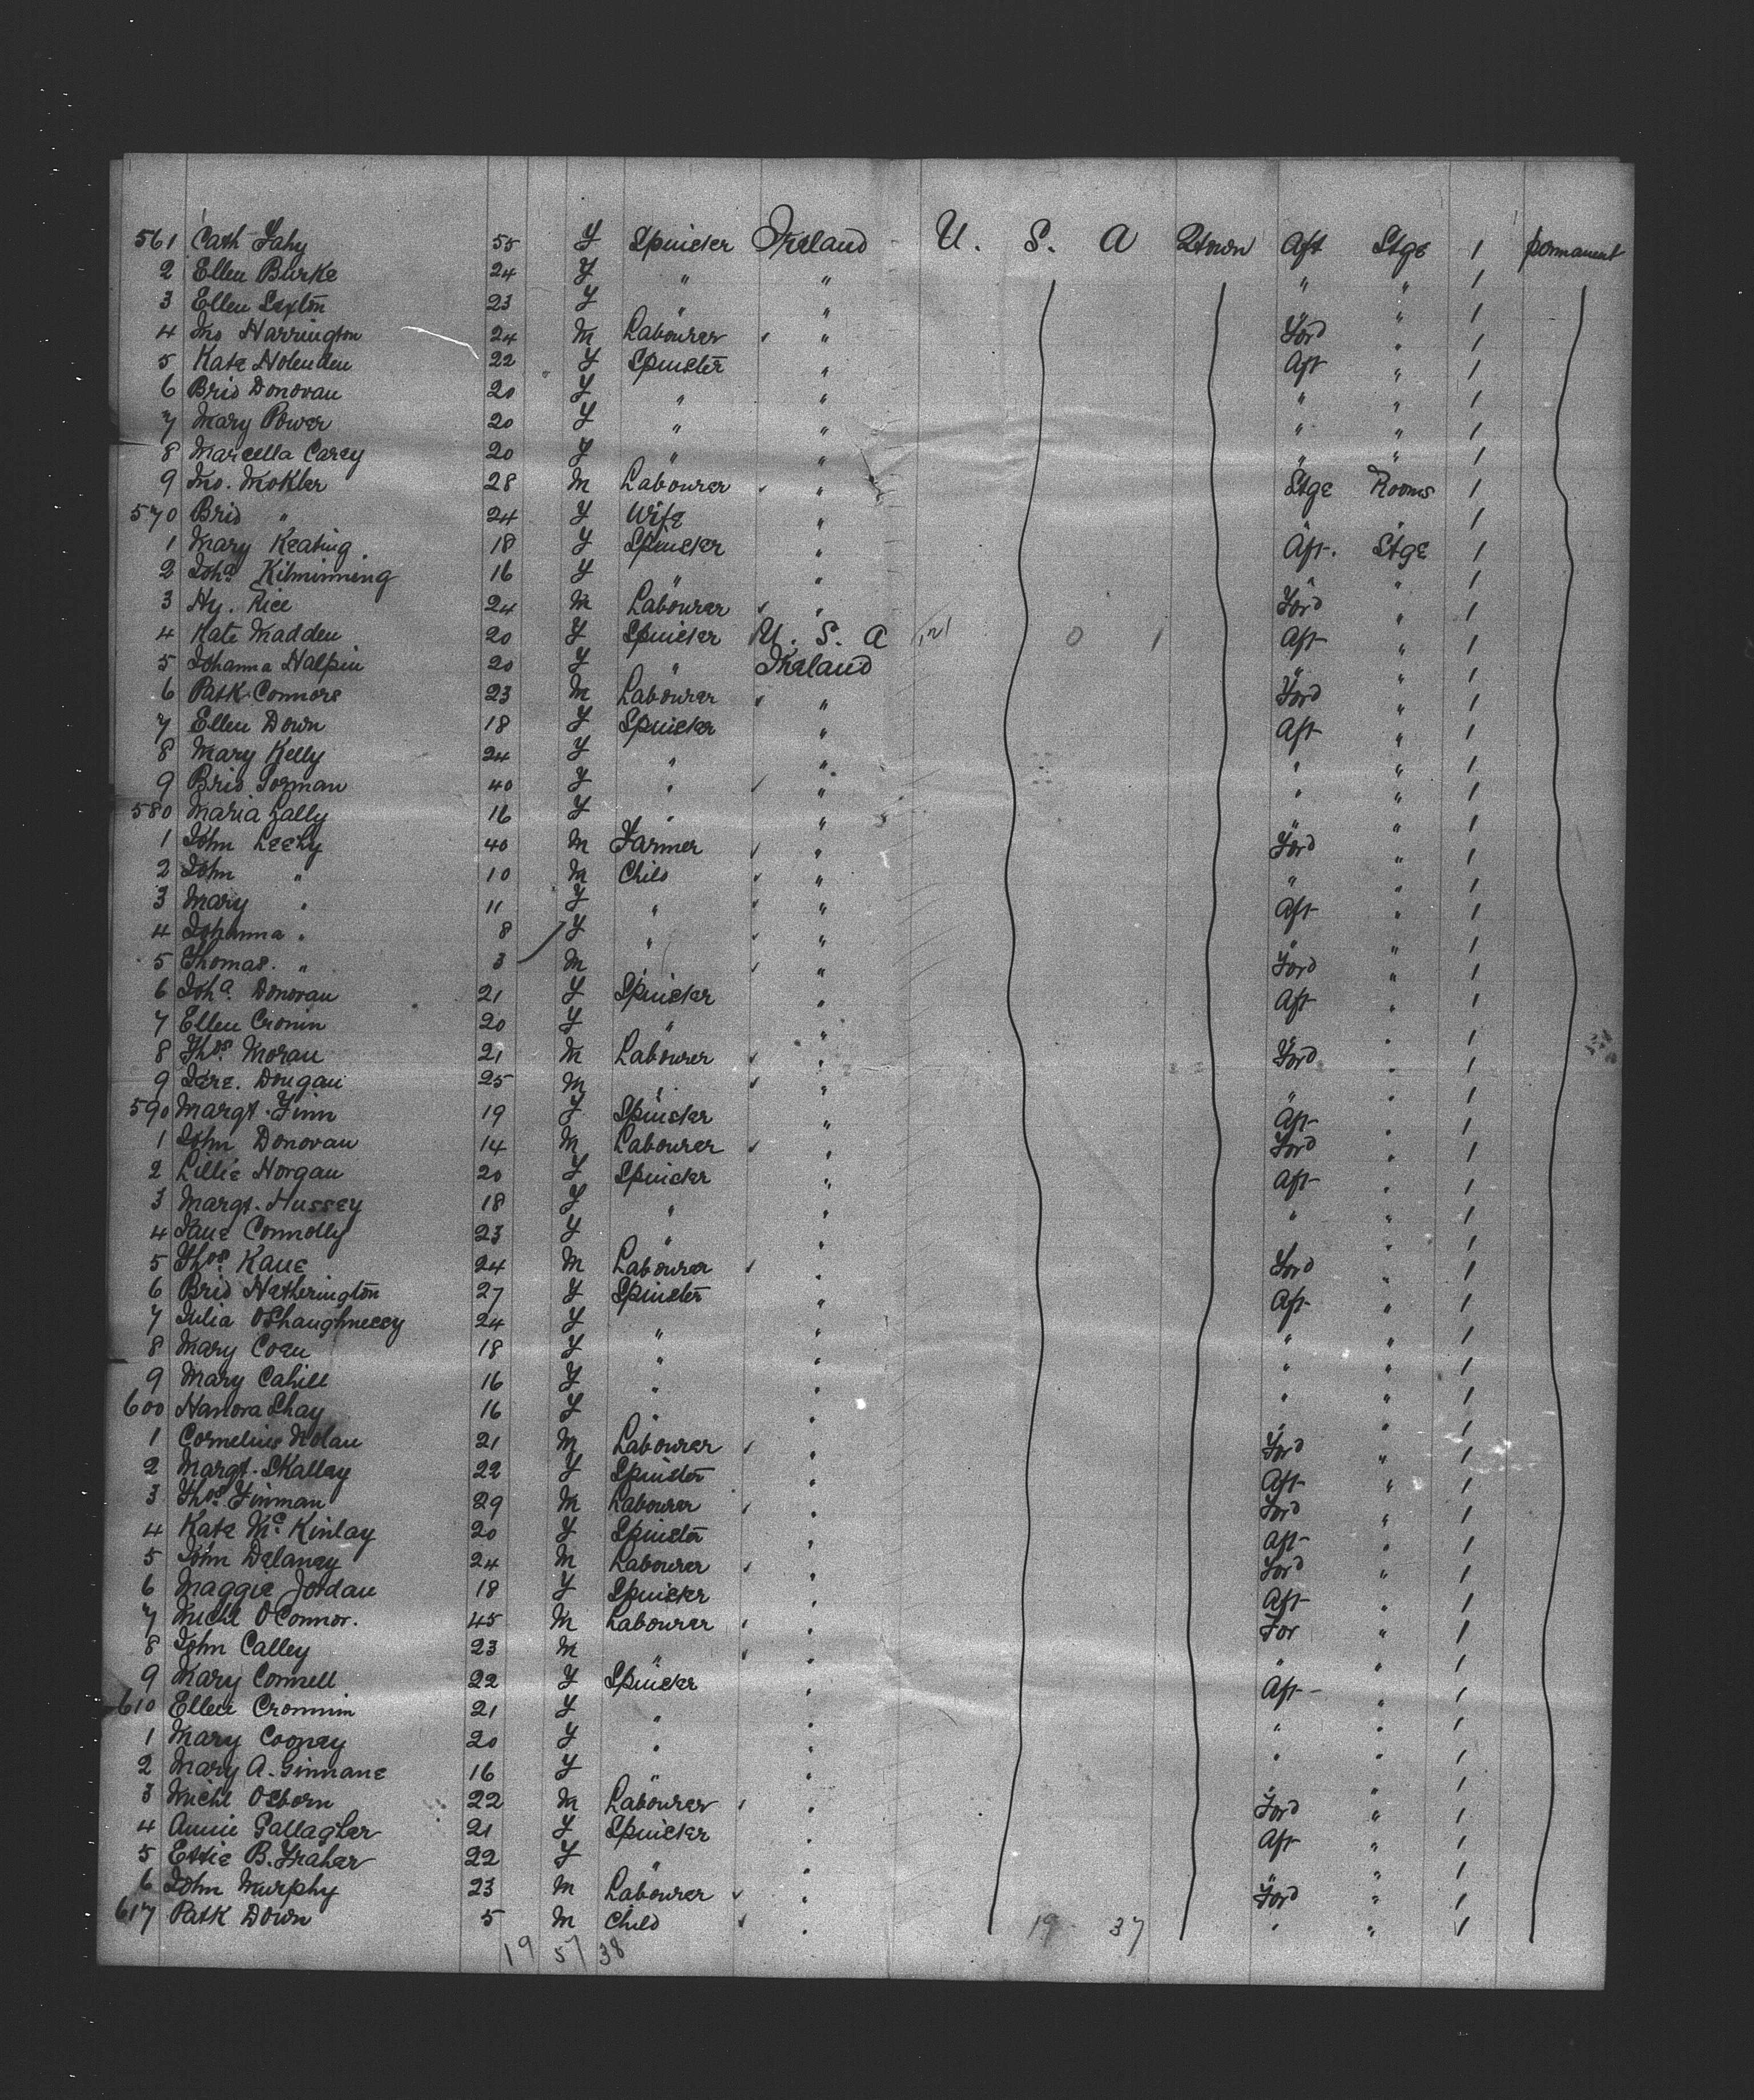 561 Cath Fahy 55 F Spinster Ireland U. S. A Qtown Aft Stge 1 permanent
2 Ellen Burke 24 F " " " " 1
3 Ellen Sexton 23 F " " " " 1
4 Jno Harrington 24 M Labourer " Ford " 1
5 Kate Nolenden 22 F Spinster " Aft " 1
6 Brid Donovan 20 F " " " " 1
7 Mary Power 20 F " " " " 1
8 Marcella Carey 20 F " " " " 1
9 Jno. Mokler 28 M Labourer " Stge Rooms 1
570 Brid " 24 F Wife " " " 1
1 Mary Keating 18 F Spinster " Aft. Stge 1
2 Joha Kilminneng 16 F " " " " 1
3 Hy. Rice 24 M Labourer " Ford " 1
4 Kate Madden 20 F Spinster U. S. A 0 1 Aft " 1
5 Johanna Halpin 20 F " Ireland " " 1
6 Patk Connors 23 M Labourer " Ford " 1
7 Ellen Down 18 F Spinster " Aft " 1
8 Mary Kelly 24 F " " " " 1
9 Brid Gorman 40 F " " " " 1
580 Maria Lally 16 F " " " " 1
1 John Leehy 40 M Farmer " Ford " 1
2 John " 10 M Child " " " 1
3 Mary " 11 F " " Aft " 1
4 Johanna " 8 F " " " " 1
5 Thomas " 3 M " " Ford " 1
6 Joha Donovan 21 F Spinster " Aft " 1
7 Ellen Cronin 20 F " " " " 1
8 Thos Moran 21 M Labourer " Ford " 1
9 Jere. Dongan 25 M " " " " 1
590 Margt. Finn 19 F Spinster " Aft " 1
1 John Donovan 14 M Labourer " Ford " 1
2 Lillie Horgan 20 F Spinster " Aft " 1
3 Margt. Hussey 18 F " " " " 1
4 Jane Connolly 23 F " " " " 1
5 Thos Kane 24 M Labourer " Ford " 1
6 Brid Hetherington 27 F Spinster " Aft " 1
7 Julia OShaughnessy 24 F " " " " 1
8 Mary Coen 18 F " " " " 1
9 Mary Cahill 16 F " " " " 1
600 Hanora Shay 16 F " " " " 1
1 Cornelius Nolan 21 M Labourer " Ford " 1
2 Margt. Skalley 22 F Spinster " Aft " 1
3 Thos Finman 29 M Labourer " Ford " 1
4 Kate Mc Kinlay 20 F Spinster " Aft " 1
5 John Delaney 24 M Labourer " Ford " 1
6 Maggie Jordan 18 F Spinster " Aft " 1
7 Michl OConnor. 45 M Labourer " For " 1
8 John Calley 23 M " " " " 1
9 Mary Connell 22 F Spinster " Aft " 1
610 Ellen Cronnin 21 F " " " " 1
1 Mary Cooney 20 F " " " " 1
2 Mary A. Ginnane 16 F " " " " 1
3 Michl Osborn 22 M Labourer " Ford " 1
4 Annie Gallagher 21 F Spinster " Aft " 1
5 Essie B. Fraher 22 F " " " " 1
6 John Murphy 23 M Labourer " Ford " 1
617 Patk Down 5 M Child " 19 37 " " 1
19 57 38